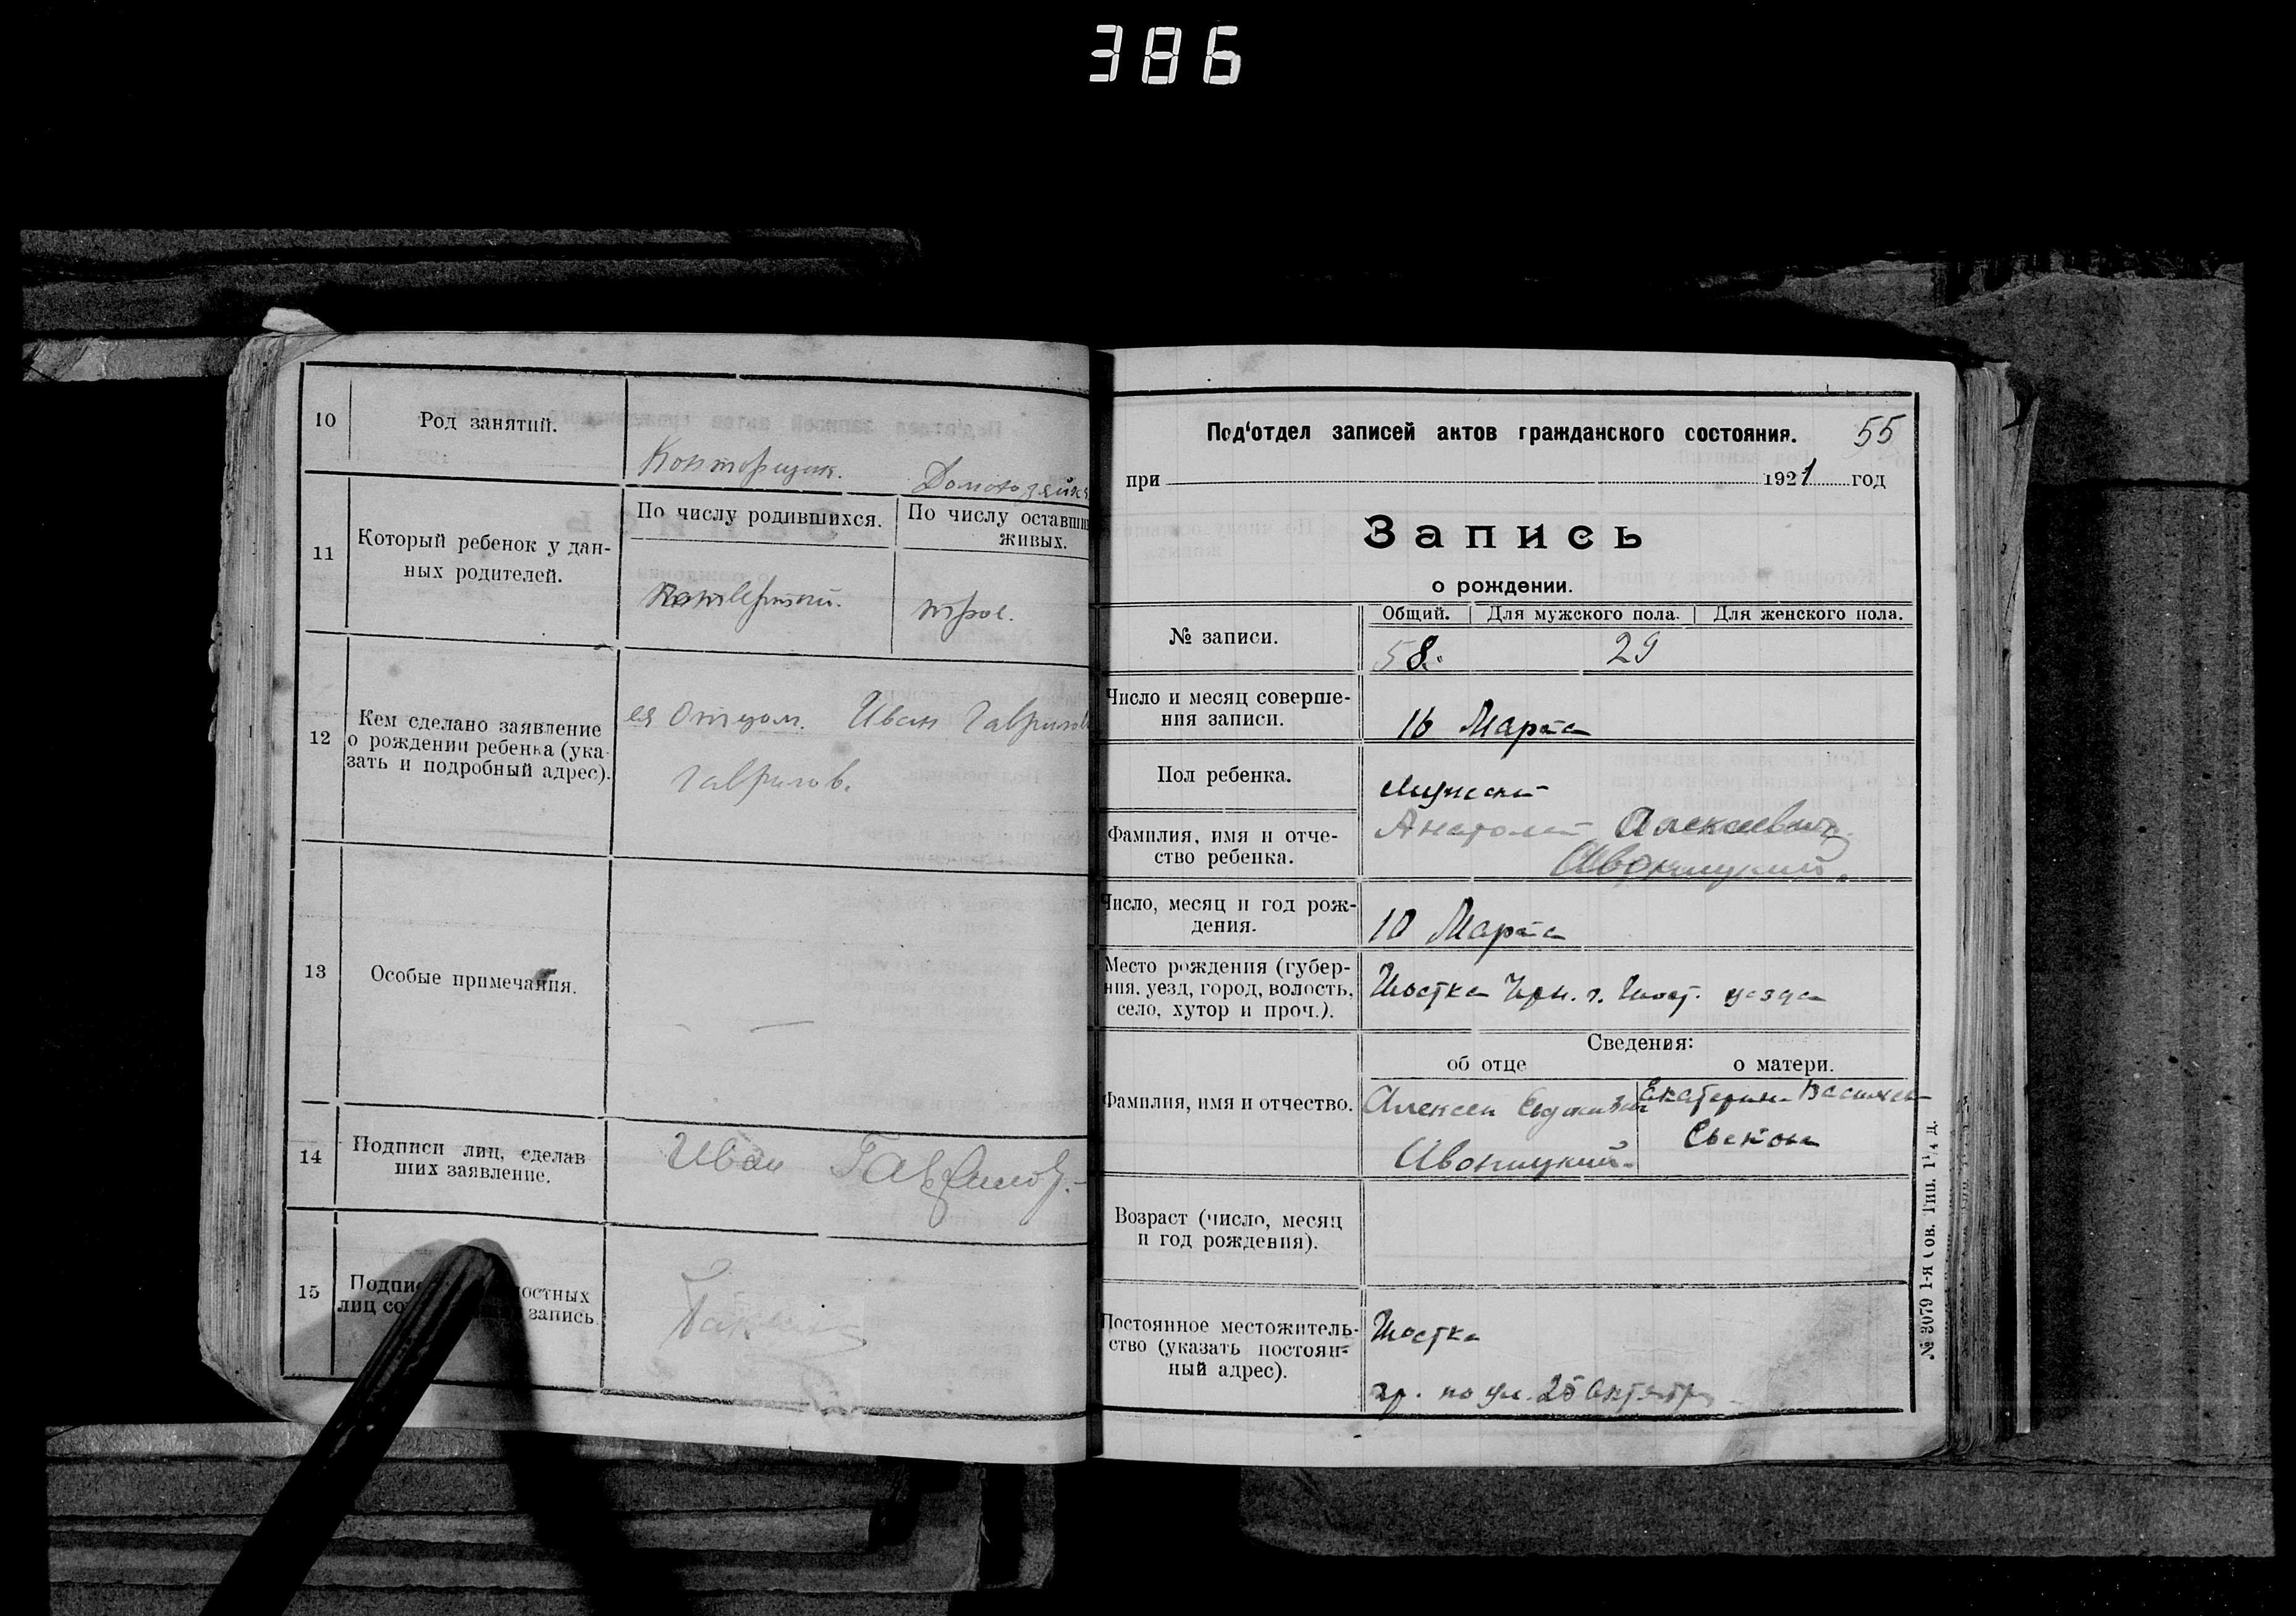 386
10
Род занятий.
Конторщик.
Домохозяйка
11
Который ребенок у дан-
ных родителей.
По числу родившихся.
По числу оставши
живых.
трое.
12
Кем сделано заявление
о рождении ребенка (ука-
зать и подробный адрес).
ея Отцом. Иван Гаврилов
Гаврилов.
13
Особые примечания.
14
Подписи лиц, сделав
ших заявление.
Иван Гаврилов.
15
Подпи остных
лиц со запись.
Под'отдел записей актов гражданского состояния.
55
при 1921 год
Запись
о рождении.
№ записи.
Общий. Для мужского пола. Для женского пола.
58. 29
Число и месяц соверше-
ния записи.
16 Марта
Пол ребенка.
Мужской
Фамилия, имя и отче-
ство ребенка.
Анатолий Алексеевич
Число, месяц и год рож-
дения.
10 Марта
Место рождения (губер-
ния, уезд, город, волость,
село, хутор и проч.).
Шостка Чрн. г. Шост. уезда
Сведения:
об отце
о матери.
Фамилия, имя и отчество.
Алексей
Екатерина
Возраст (число, месяц
и год рождения).
Постоянное местожитель-
ство (указать постоян-
ный адрес).
Шостка
гр. по ул. 25 Октября
№ 3079 1-я Сов. Тип. 1¹/₄ д.